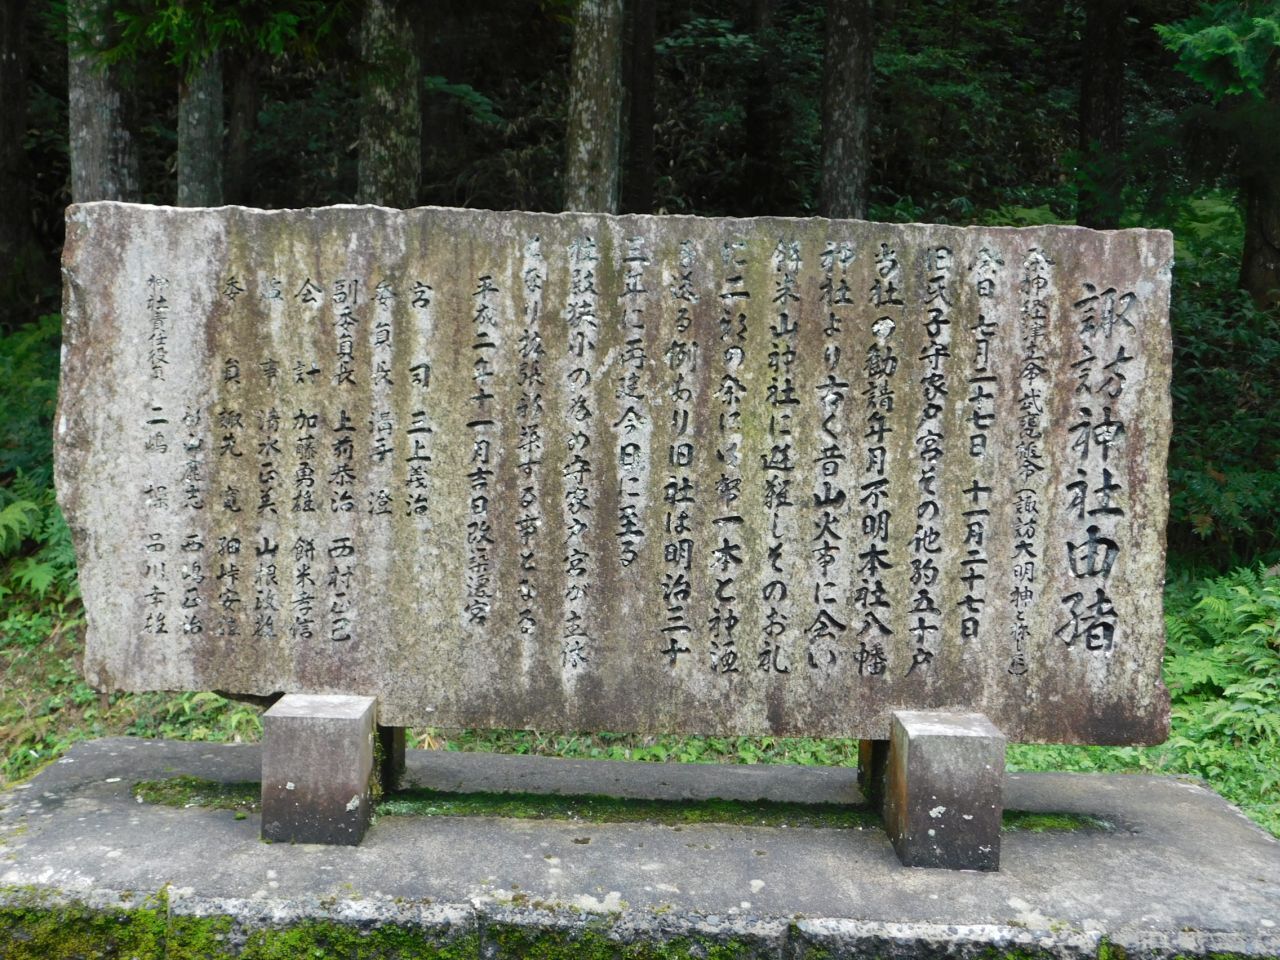 諏訪神社由緒
祭神経津主命 武甕槌命(諏訪大明神と称し)
祭日 七月二十七日 十一月二十七日
旧氏子守家戸宮その他約五十戸
当社の勧請年月不明本社八幡
神社より古く昔山火事に会い
餅米山神社に遊難しその お礼
に二部の祭には 一本と神酒
を送る例あり旧社は明治三十
三年に再建今日に至る
社殿狭小の為め守家戸宮が主体
となり拡張新築する事となる
平成二年十一月吉日改築遷宮
宮司 三上義治
委員長 溝子 澄
副委員長 上前恭治 西村正巳
会計 加藤勇雄 餅米孝信
監事 清水正美 山根政敏
委員 諏先 寛 細峠安

杉山鹿志 西嶋正治
神社責任役員 二嶋 操 呂川幸雄